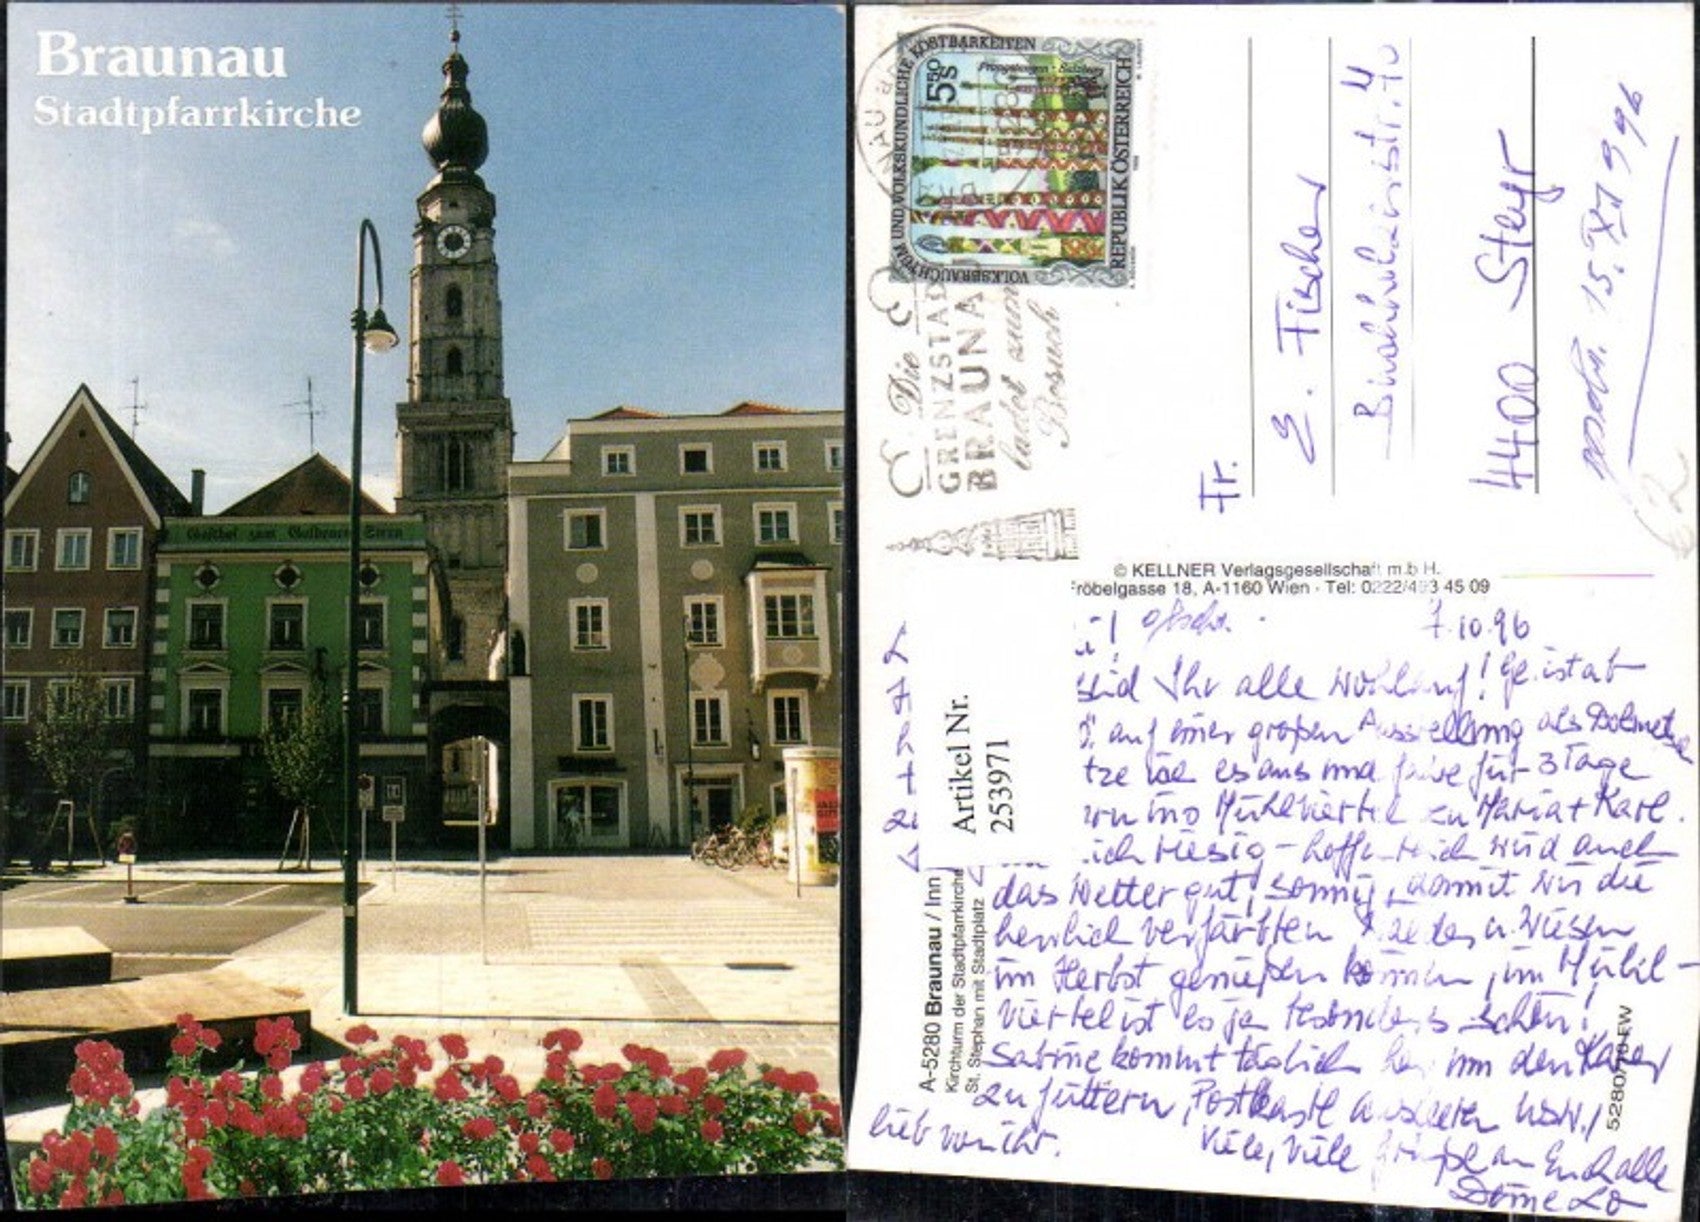 Braunau
Stadtpfarrkirche
Gasthof zum Goldenen Stern
VOLKSBRAUCHTUM UND VOLKSKUNDLICHE KOSTBARKEITEN
5.50 S
Prangstangen - Salzburg
REPUBLIK ÖSTERREICH
Die
GRENZSTADT
BRAUNAU
ladet zum
Besuch
Fr.
E. Fischer
4400 Steyr
15. XI 1996
€2
© KELLNER Verlagsgesellschaft m.b.H.
Fröbelgasse 18, A-1160 Wien · Tel: 0222/493 45 09
7.10.96
seid Ihr alle wohlauf! Ge. ist ab
auf einer großen Ausstellung als Dolmetsche
es aus und für 3 Tage
ins Mühlviertel zu Maria + Karl.
ich riesig - hoffentlich wird auch
das Wetter gut, sonnig, damit wir die
herrlich verfärbten Wälder u. Wiesen
im Herbst genießen können, im Mühl-
viertel ist es ja besonders schön!
Sabine kommt täglich her um den Kater
zu füttern, Postkastl ausleeren usw.!
lieb von ihr.
Viele, viele Grüße an Euch alle
Artikel Nr.
253971
A-5280 Braunau / Inn
Kirchturm der Stadtpfarrkirche
St. Stephan mit Stadtplatz
5280/170 EW